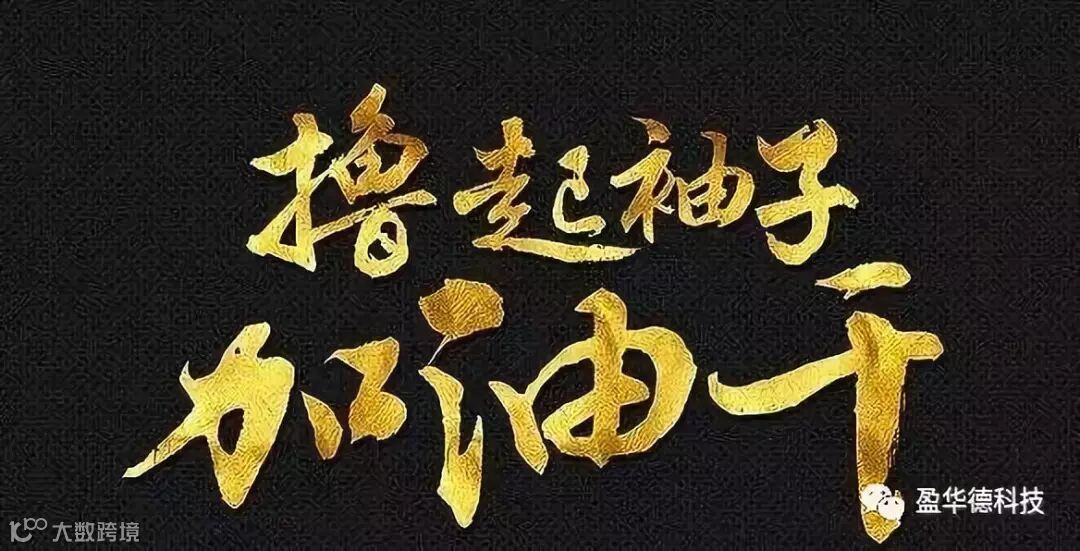 撸起袖子
加油干
盈华德科技
大数跨境